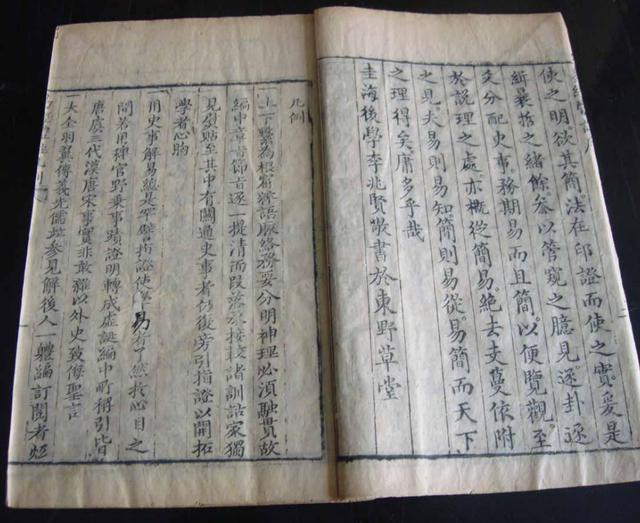 使之明欲其簡法在印證而使之實爰是
緝暴括之緒餘参以管窺之臆見逐卦逐
爻分配史事務期易而且簡以便覽觀至
於說理之處亦概從簡易絶去支蔓依附
之見夫易則易知簡則易從易簡而天下
之理得矣庸多乎哉
圭海後學李兆賢敬書於東野草堂
凡例
一上下繫為根荄辭語脈絡務要分明神理必須融貫故
編中章旨節音逐一提清而段落承接較諸訓詁家獨
見貼至其中有關通史事者仍復旁引指證以開拓
學者心胸
一用史事解易總是罕譬指證使學易有了然於心目之
間若用稗官野乗事蹟證明轉成虛誕編中所稱引皆
唐虞三代漢唐宋事實非敢雜以外史致侮聖言
一大全羽翼傳義先儒

參見解後人一軆編訂閱者